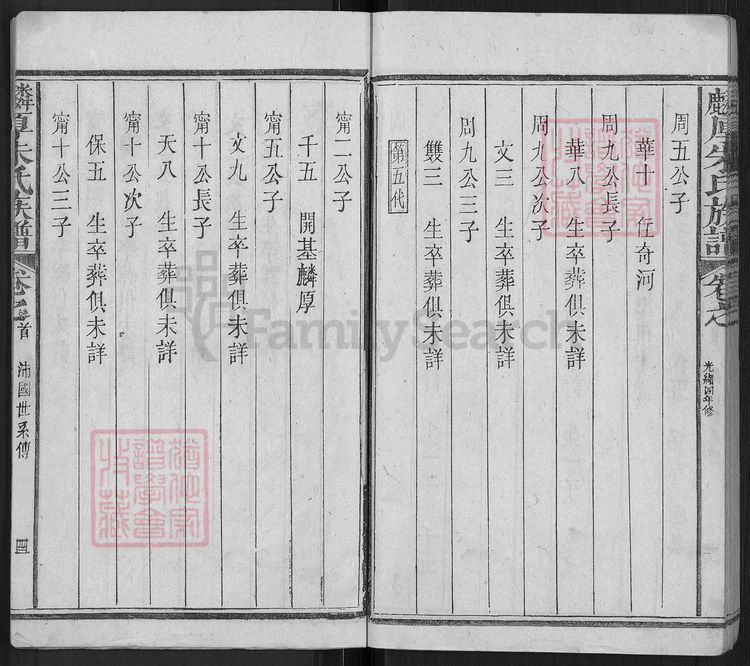 麟厚朱氏族譜
卷之
光緒四年修
周五公子
華十 仕奇河
周九公長子
華八 生卒葬俱未詳
周九公次子
文三 生卒葬俱未詳
周九公三子
雙三 生卒葬俱未詳
第五代
甯二公子
千五 開基麟厚
甯五公子
文九 生卒葬俱未詳
甯十公長子
天八 生卒葬俱未詳
甯十公次子
保五 生卒葬俱未詳
甯十公三子
麟厚朱氏族譜
卷之
首
沛國世系傳
四
FamilySearch